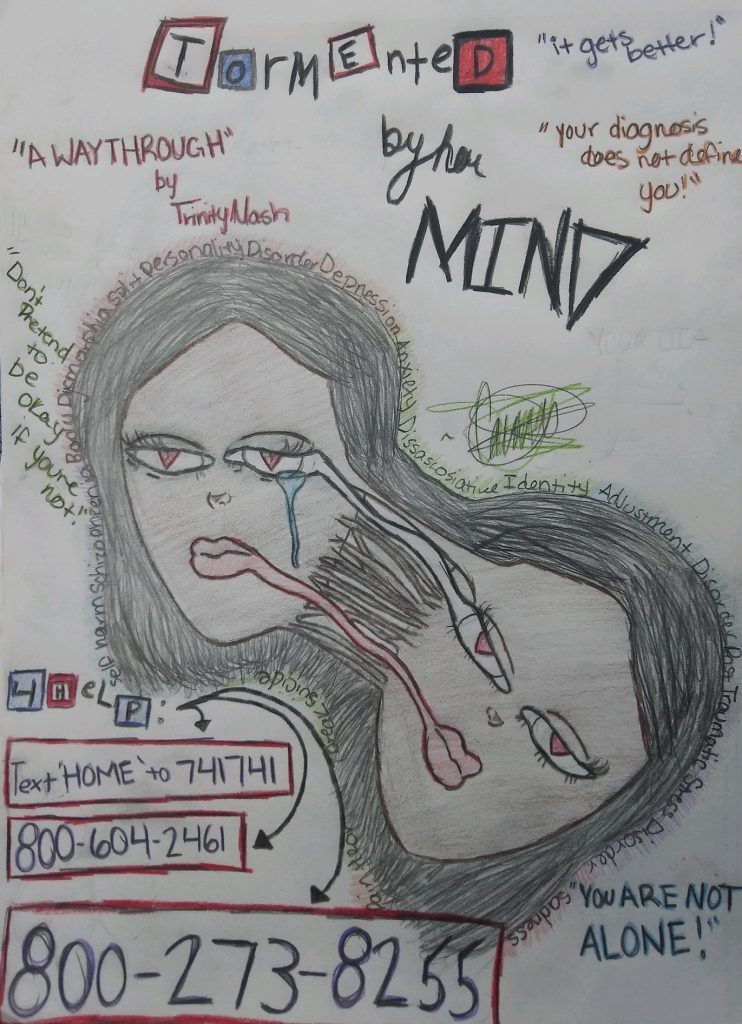 TormEnteD
"it gets
better!"
"A WAY THROUGH"
by
Trinity Nash
by her
MIND
"your diagnosis
does not define
you!"
"Don't
Pretend
to
be
okay
if you're
not."
self harm Schizophrenia Body Dismorphia Split Personality Disorder Depression Anxiety Dissastosiative Identity Adjustment Disorder Post Traumatic Stress Disorder
sadness
suicide
YOUR DIA
4 HeLP:
Text 'HOME' to 741741
800-604-2461
800-273-8255
"YOU ARE NOT
ALONE!"